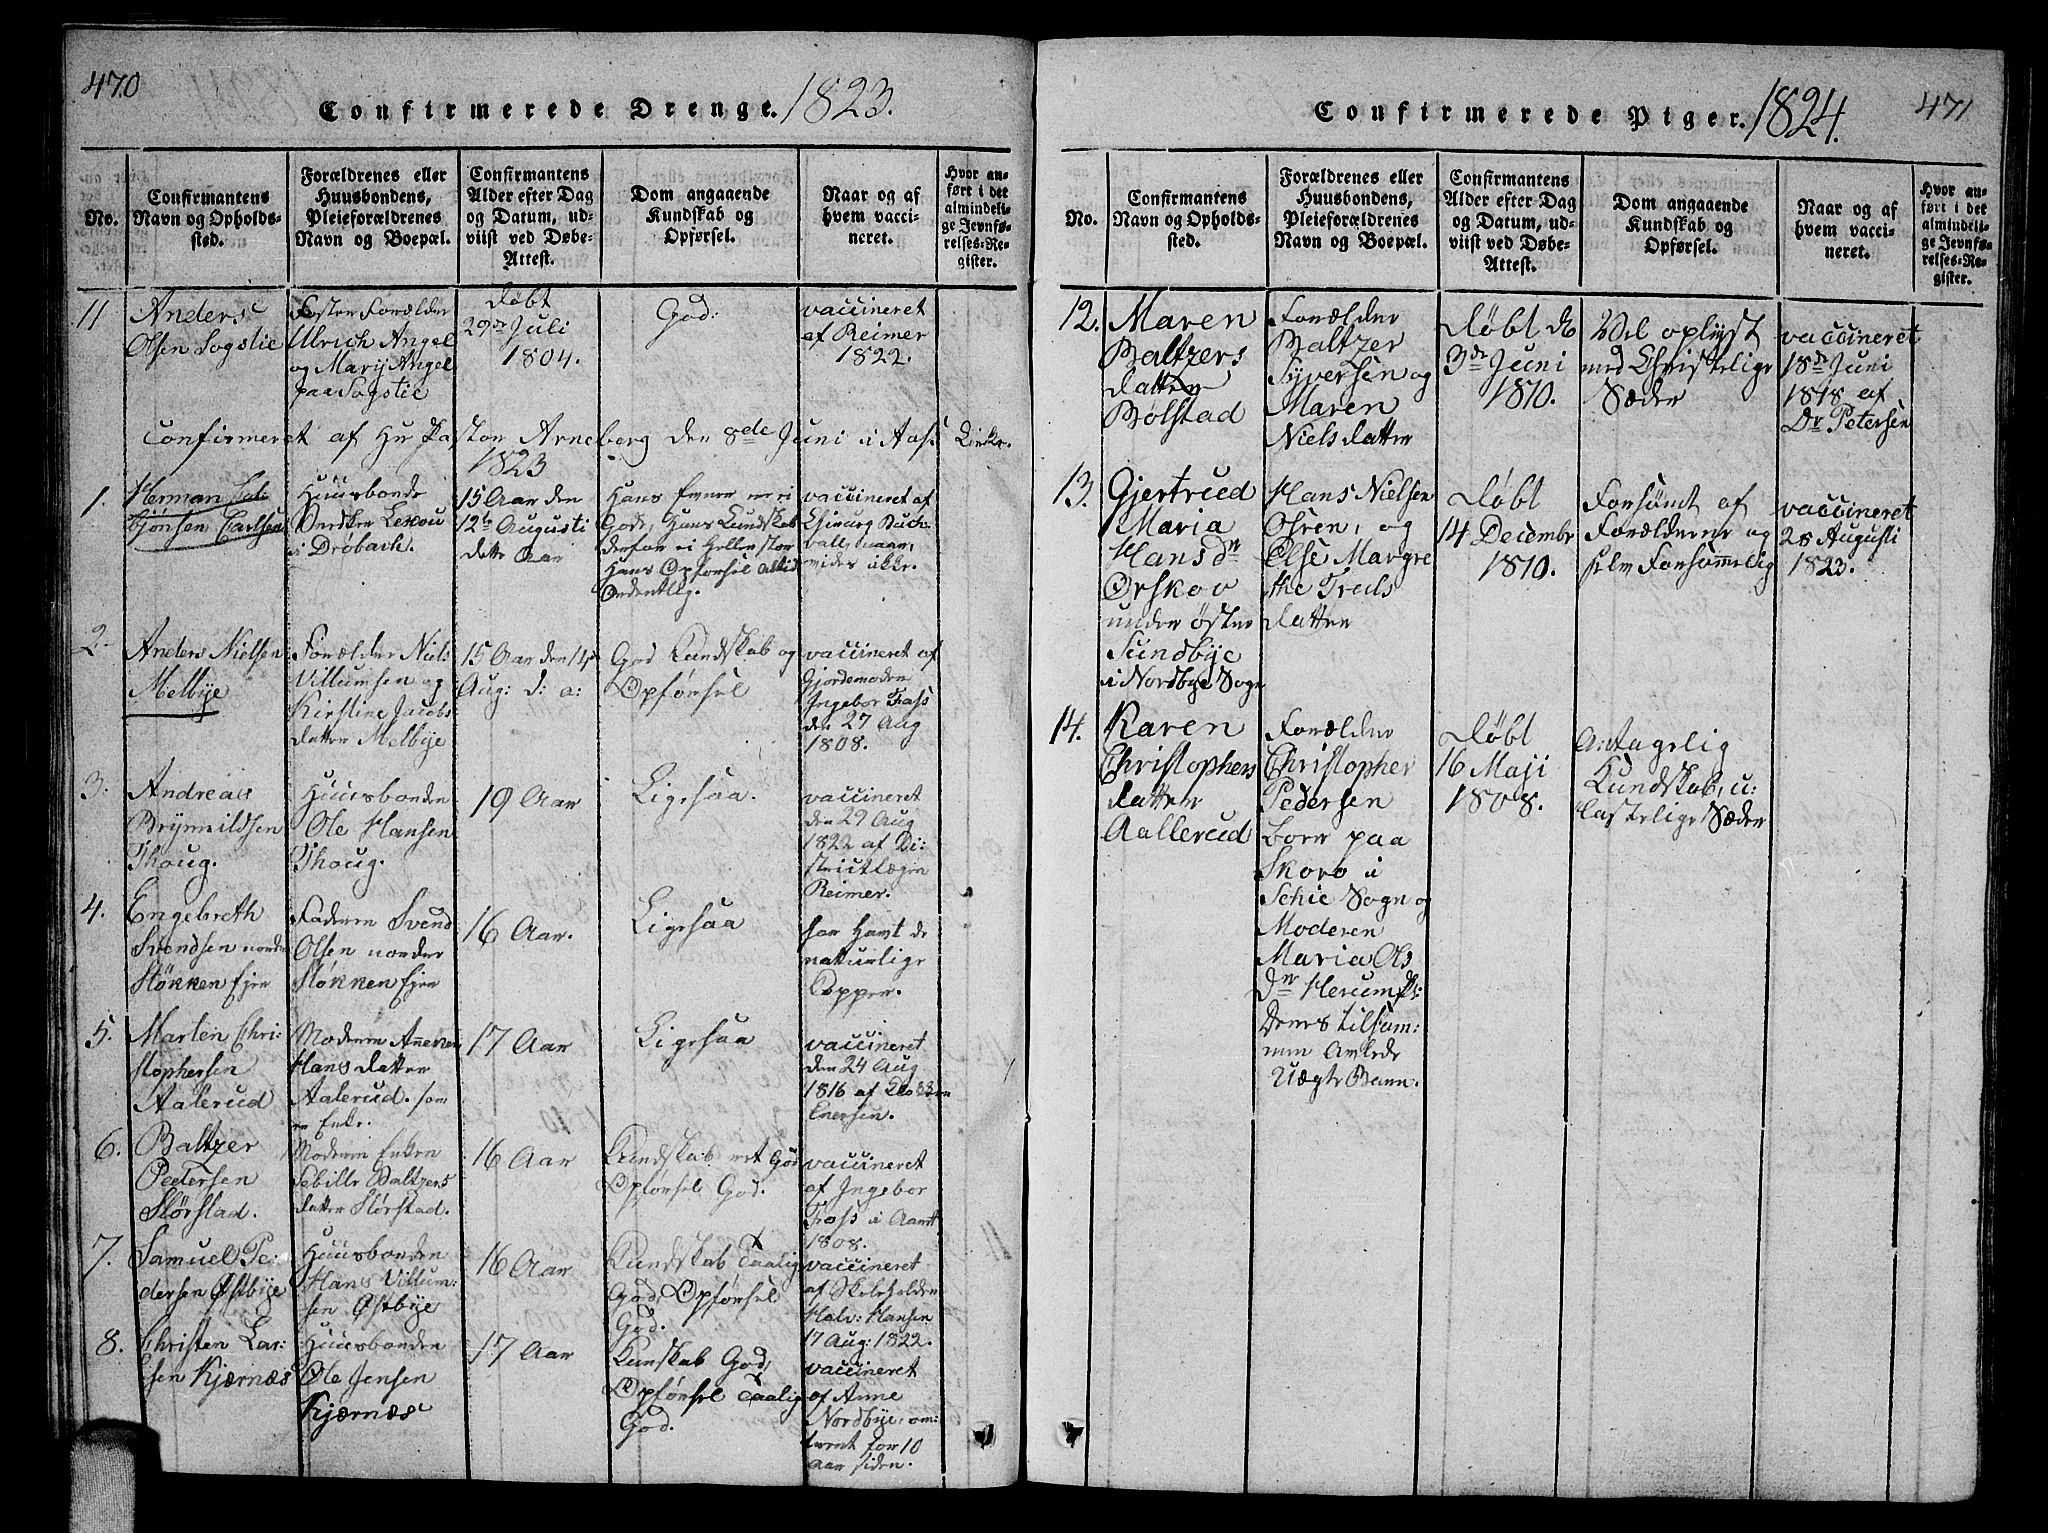 470
Confirmerede Drenge. 1823.
No.
Confirmantens
Navn og Opholds-
sted.
Forældrenes eller
Huusbondens,
Pleieforældrenes
Navn og Boepæl.
Confirmantens
Alder efter Dag
og Datum, ud-
viist ved Døbe-
Attest.
Dom angaaende
Kundskab og
Opførsel.
Naar og af
hvem vacci-
neret.
Hvor an-
ført i det
almindeli-
ge Jevnfø-
relses-Re-
gister.
11
Anders
Olsen Sogstie
Foster Forælder
Ulrich Angel
og Mary Angel
paa Sogstie
døbt
29de Juli
1804.
God:
vaccineret
af Reimer
1822.
Confirmeret af Hr Pastor Arneberg den 8de Juni i Aas Kirke.
1823
1.
Herman
bjönsen Carlsen
Huusbonde
i Dröbach.
15 Aar den
12te Augusti
dette Aar
Hans Evner er ei
Gode, Hans Kundskab
derfor ei Heller stor
Hans Opförsel altid
Ordentlig.
vaccineret af
naar,
vides ikke.
2.
Anders Nielsen
Melbye
Forælder Niels
Villumsen og
Kirstine Jacobs
datter Melbye
15 Aar den 14
Aug: d: a:
God Kundskab og
Opförsel
vaccineret af
Gjordemoder
Ingebor Foss
den 27 Aug
1808.
3.
Andreas
Brynnildsen
Thoug.
Huusbonden
Ole Hansen
Thoug.
19 Aar
Ligesaa.
vaccineret
den 29 Aug
1822 af Di:
strictlægen
Reimer.
4.
Engebreth
Svendsen nordre
Stökken Ejer
Faderen Svend
Olsen nordre
Stökken Ejer
16 Aar.
Ligesaa
har Havt de
naturlige
Copper.
5.
Marten Chri:
stophersen
Aalerud
Moderen Anne
Hans datter
Aalerud. som
er Enke.
17 Aar
Ligesaa
vaccineret
den 24 Aug
1816 af Klokker
Enersen.
6.
Baltzer
Pedersen
Störstad.
Moderen Enken
Sebille Baltzers
datter Störstad.
16 Aar
Kundskab ret God
Opförsel God.
vaccineret
af Ingebor
Foss i Aaret
1808.
7.
Samuel Pe:
dersen Østbye
Huusbonden
Hans Villum:
sen Østbye
16 Aar
Kundskab Taalig
God, Opförsel
God.
vaccineret
af Skoleholder
Halv: Hansen
17 Aug: 1822.
8.
Christen Lar:
sen Kjærnæs
Huusbonden
Ole Jensen
Kjærnæs
17 Aar
Kunskab God,
Opförsel Taalig
God.
vaccineret
af Anne
Nordbye, om:
trent for 10
Aar siden.
Confirmerede Piger. 1824.
471
No.
Confirmantens
Navn og Opholds-
sted.
Forældrenes eller
Huusbondens,
Pleieforældrenes
Navn og Boepæl.
Confirmantens
Alder efter Dag
og Datum, ud-
viist ved Døbe-
Attest.
Dom angaaende
Kundskab og
Opførsel.
Naar og af
hvem vacci-
neret.
Hvor an-
ført i det
almindeli-
ge Jevnfø-
relses-Re-
gister.
12.
Maren
Baltzers
datter
Bölstad
Forælder
Baltzer
Syversen og
Maren
Niels datter
Døbt d
3de Juni
1810.
Vel oplyst
med Christelige
Sæder
vaccineret
18de Juni
1818 af
Dr Petersen
13.
Gjertrud
Maria
Hans dr
Orskov
under öster
Sundbye
i Nordbye Sogn
Hans Nielsen
Osren, og
Else Margre
the Treds
datter
Døbt
14 Decembr
1810.
Forsömt af
Forælderne og
selv Forsömmelig
vaccineret
28 Augusti
1823.
14.
Karen
Christophers
datter
Aallerud
Forælder
Christopher
Pedersen
boer paa
Skoro i
Schie Sogn og
Moderen
Maria Ols
Dr Herum
Denes tilsam:
men Avlede
Uægte Barn.
Døbt
16 Maji
1808.
Antagelig
Kundskab, u:
lastelige Sæder